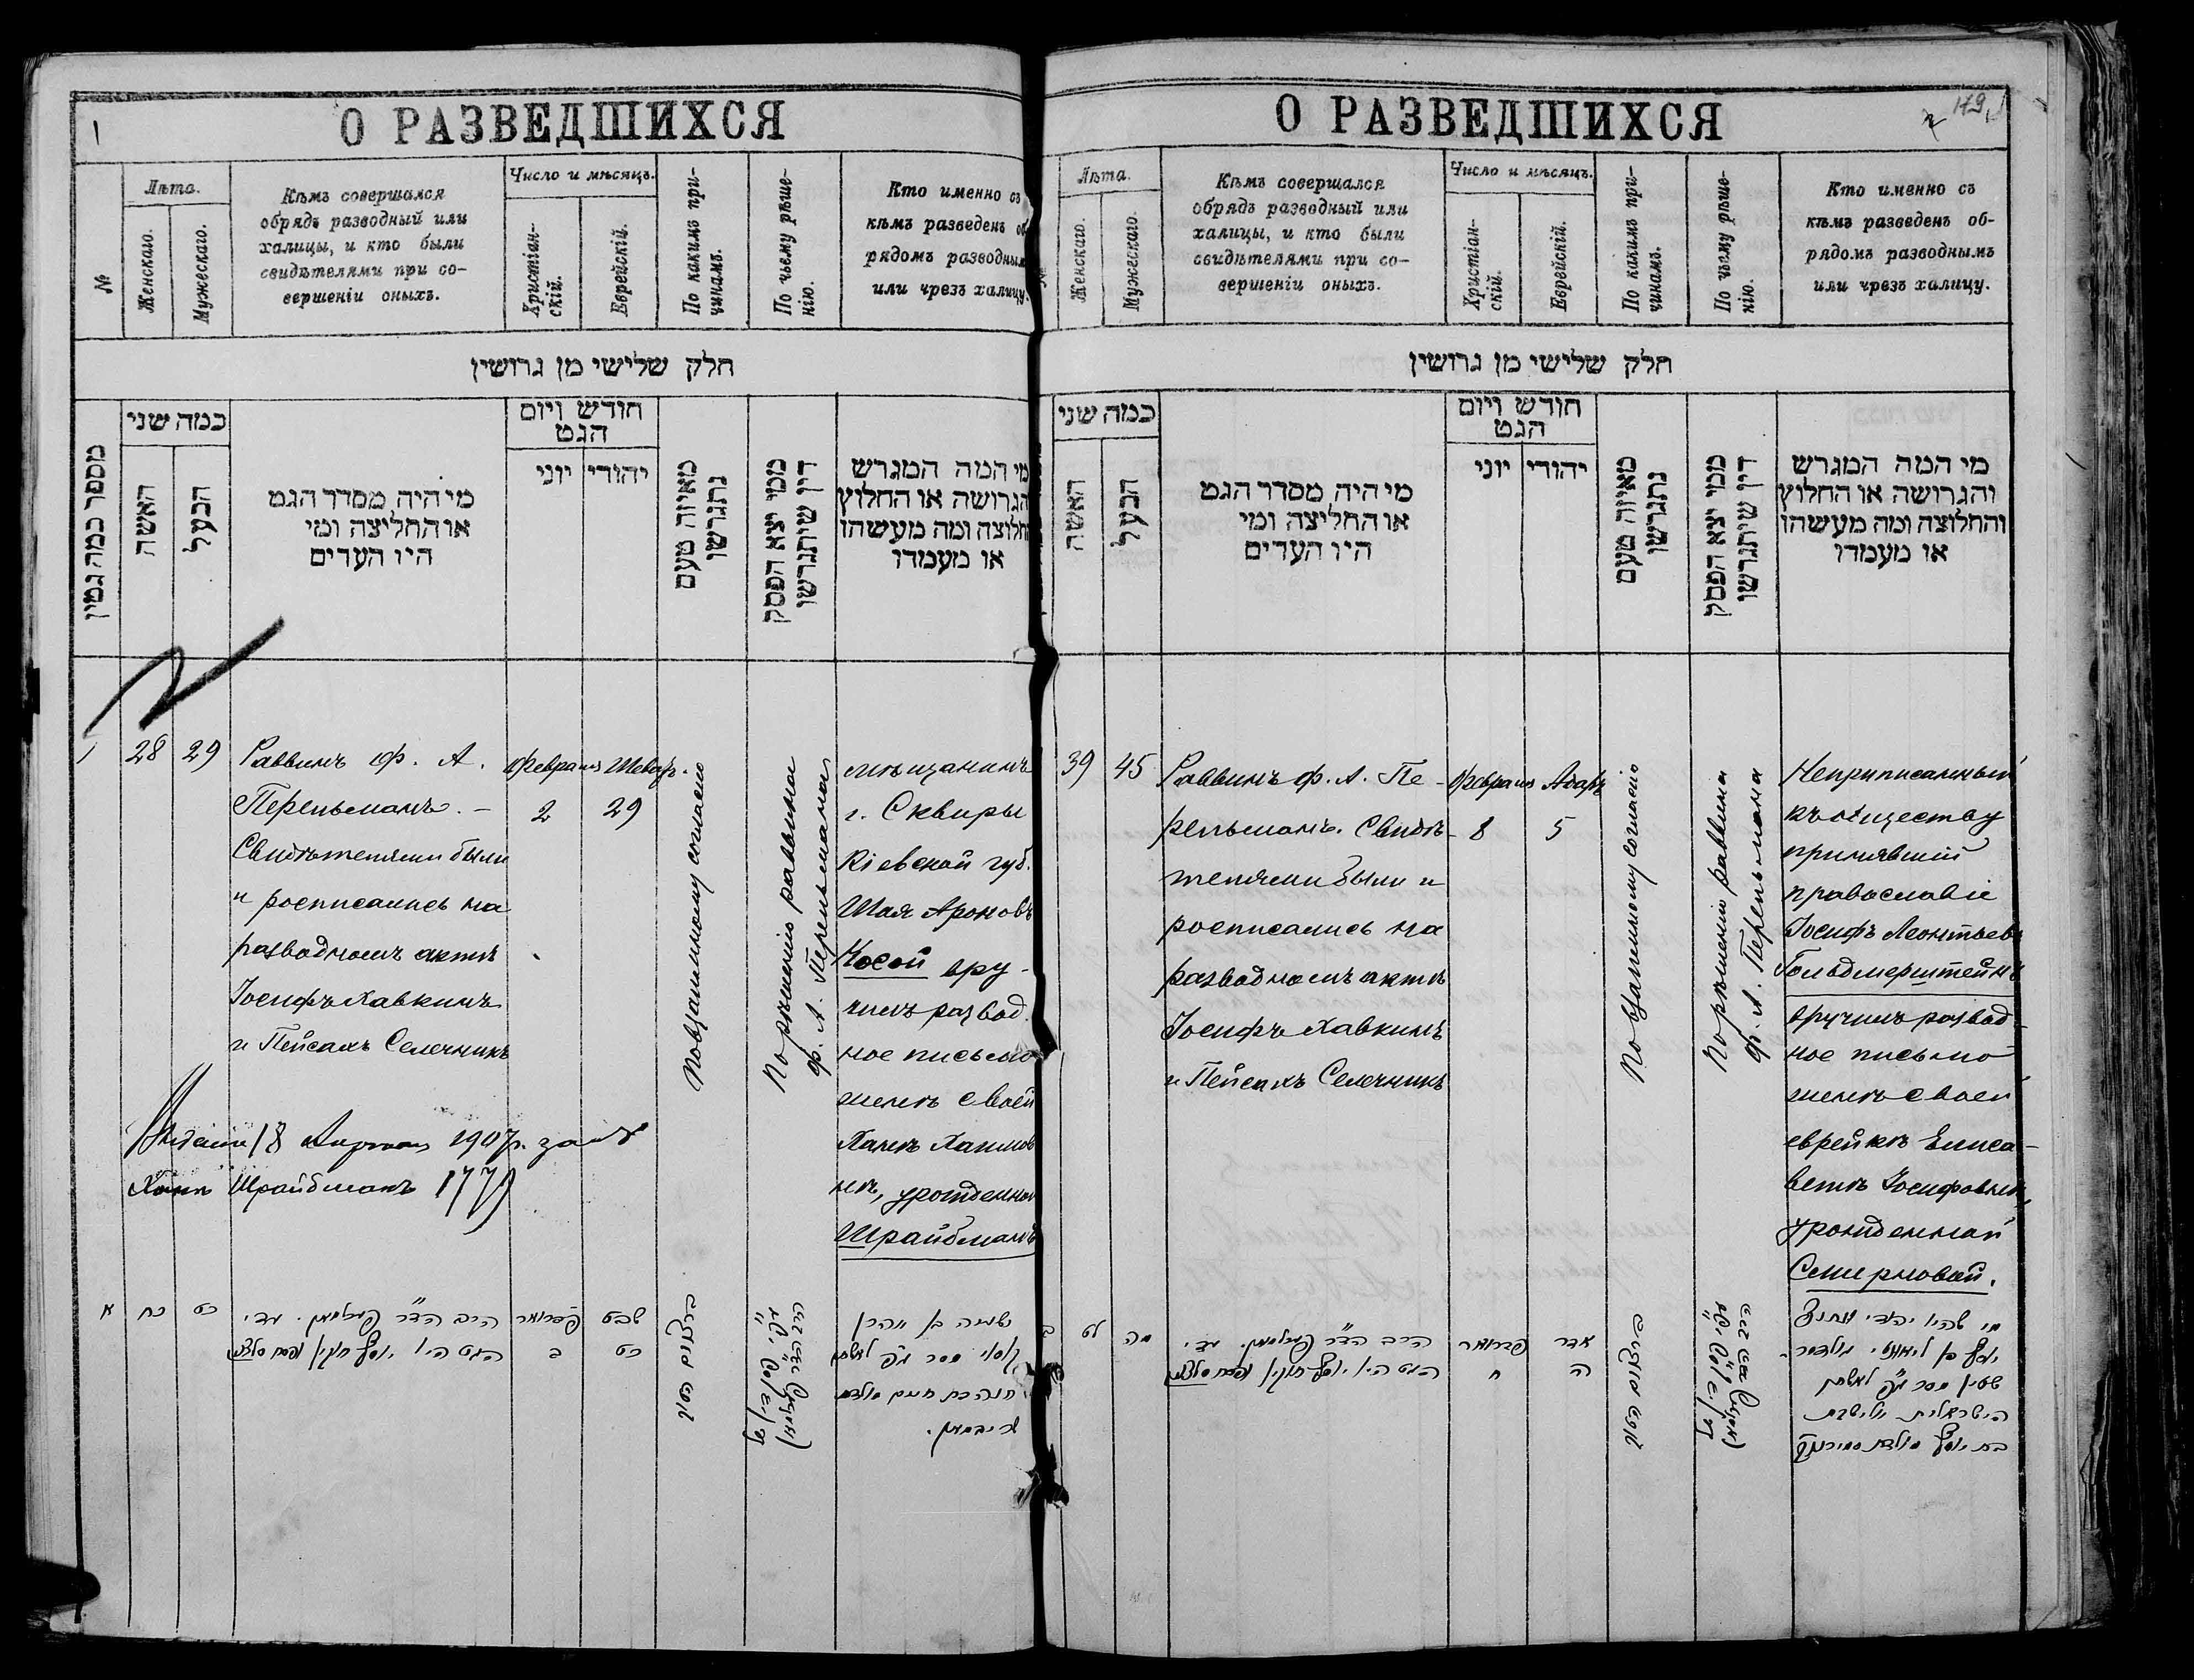 1
О РАЗВЕДШИХСЯ
№
Лѣта.
Женскаго.
Мужескаго.
Кѣмъ совершался
обрядъ разводный или
халицы, и кто были
свидѣтелями при со-
вершеніи оныхъ.
Число и мѣсяцъ.
Христіан-
скій.
Еврейскій.
По какимъ при-
чинамъ.
По чьему рѣше-
нію.
Кто именно съ
кѣмъ разведенъ об
рядомъ разводным
или чрезъ халицу.
חלק שלישי מן גרושין
מספר כמה גמין
כמה שני
האשה
הבעל
מי היה מסדר הגט
או החליצה ומי
היו העדים
חודש ויום
הגט
יוני
יהודי
מאיזה טעם
נתגרשו
ממי יצא הפסק
דין שיתגרשו
מי המה המגרש
והגרושה או החלוץ
והחלוצה ומה מעשהו
או מעמדו
1
28
29
Раввинъ Ф. А.
Перельманъ. –
Свидѣтелями были
и росписались на
разводномъ актѣ
Іосифъ Хавкинъ
и Пейсахъ Селечникъ
Февраля
2
Шеватъ.
29
По взаимному согласію
По рѣшенію раввина
Ф. А. Перельмана
мѣщанинъ
г. Сквиры
Кіевской губ.
Шая Ароновъ
Косой вру-
чилъ развод-
ное письмо
женѣ своей
Ханѣ Хаимов
нѣ, урожденной
Шрайбманъ
18 Апрѣля 1907 г. за №
Ханѣ Шрайбманъ
א
כח
כט
הרב הד״ר פערלמאן. עדי
הגט היו יוסף חוקין ופסח סלצניק
פברואר
ב
שבט
כט
ישעיה בן אהרן
קאסוי מסר ג״פ לאשתו
חנה בת חיים מולדת
שרייבמאן.
О РАЗВЕДШИХСЯ
179
Лѣта.
Женскаго.
Мужескаго.
Кѣмъ совершался
обрядъ разводный или
халицы, и кто были
свидѣтелями при со-
вершеніи оныхъ.
Число и мѣсяцъ.
Христіан-
скій.
Еврейскій.
По какимъ при-
чинамъ.
По чьему рѣше-
нію.
Кто именно съ
кѣмъ разведенъ об-
рядомъ разводнымъ
или чрезъ халицу.
חלק שלישי מן גרושין
כמה שני
האשה
הבעל
מי היה מסדר הגט
או החליצה ומי
היו העדים
חודש ויום
הגט
יוני
יהודי
מאיזה טעם
נתגרשו
ממי יצא הפסק
דין שיתגרשו
מי המה המגרש
והגרושה או החלוץ
והחלוצה ומה מעשהו
או מעמדו
39
45
Раввинъ Ф. А. Пе-
рельманъ. Свидѣ-
телями были и
росписались на
разводномъ актѣ
Іосифъ Хавкинъ
и Пейсахъ Селечникъ
Февраля
8
Адаръ
5
По взаимному согласію
По рѣшенію раввина
Ф. А. Перельмана
Неприписанный
къ обществу
принявшій
православіе
Іосифъ Леонтьевъ
Гольдмерштейнъ
вручилъ развод-
ное письмо
женѣ своей
еврейкѣ Елиса-
ветѣ Іосифовнѣ,
урожденной
Смирновой.
ב
לט
מה
הרב הד״ר פערלמאן. עדי
הגט היו יוסף חוקין ופסח סלצניק
פברואר
ח
אדר
ה
מי שהיו יהודי
יוסף בן
שטיין מסר ג״פ לאשתו
הישראלית
בת יוסף מולדת